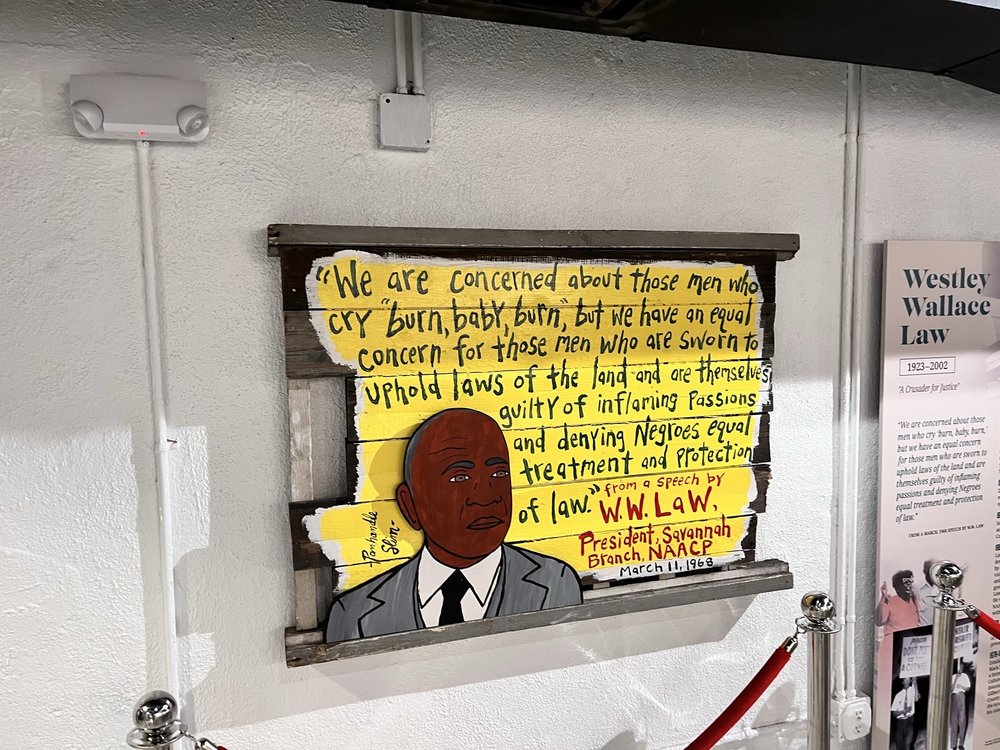 “We are concerned about those men who
cry “burn, baby, burn,” but we have an equal
concern for those men who are sworn to
uphold laws of the land and are themselves
guilty of inflaming passions
and denying Negroes equal
treatment and protection
of law.”
from a speech by
W.W. LaW,
President, Savannah
Branch, NAACP
March 11, 1968
Panhandle
Slim-
Westley
Wallace
Law
1923–2002
"A Crusader for Justice"
"We are concerned about those
men who cry 'burn, baby, burn,'
but we have an equal concern
for those men who are sworn to
uphold laws of the land and are
themselves guilty of inflaming
passions and denying Negroes
equal treatment and protection
of law."
FROM A MARCH, 1968 SPEECH BY W.W. LAW